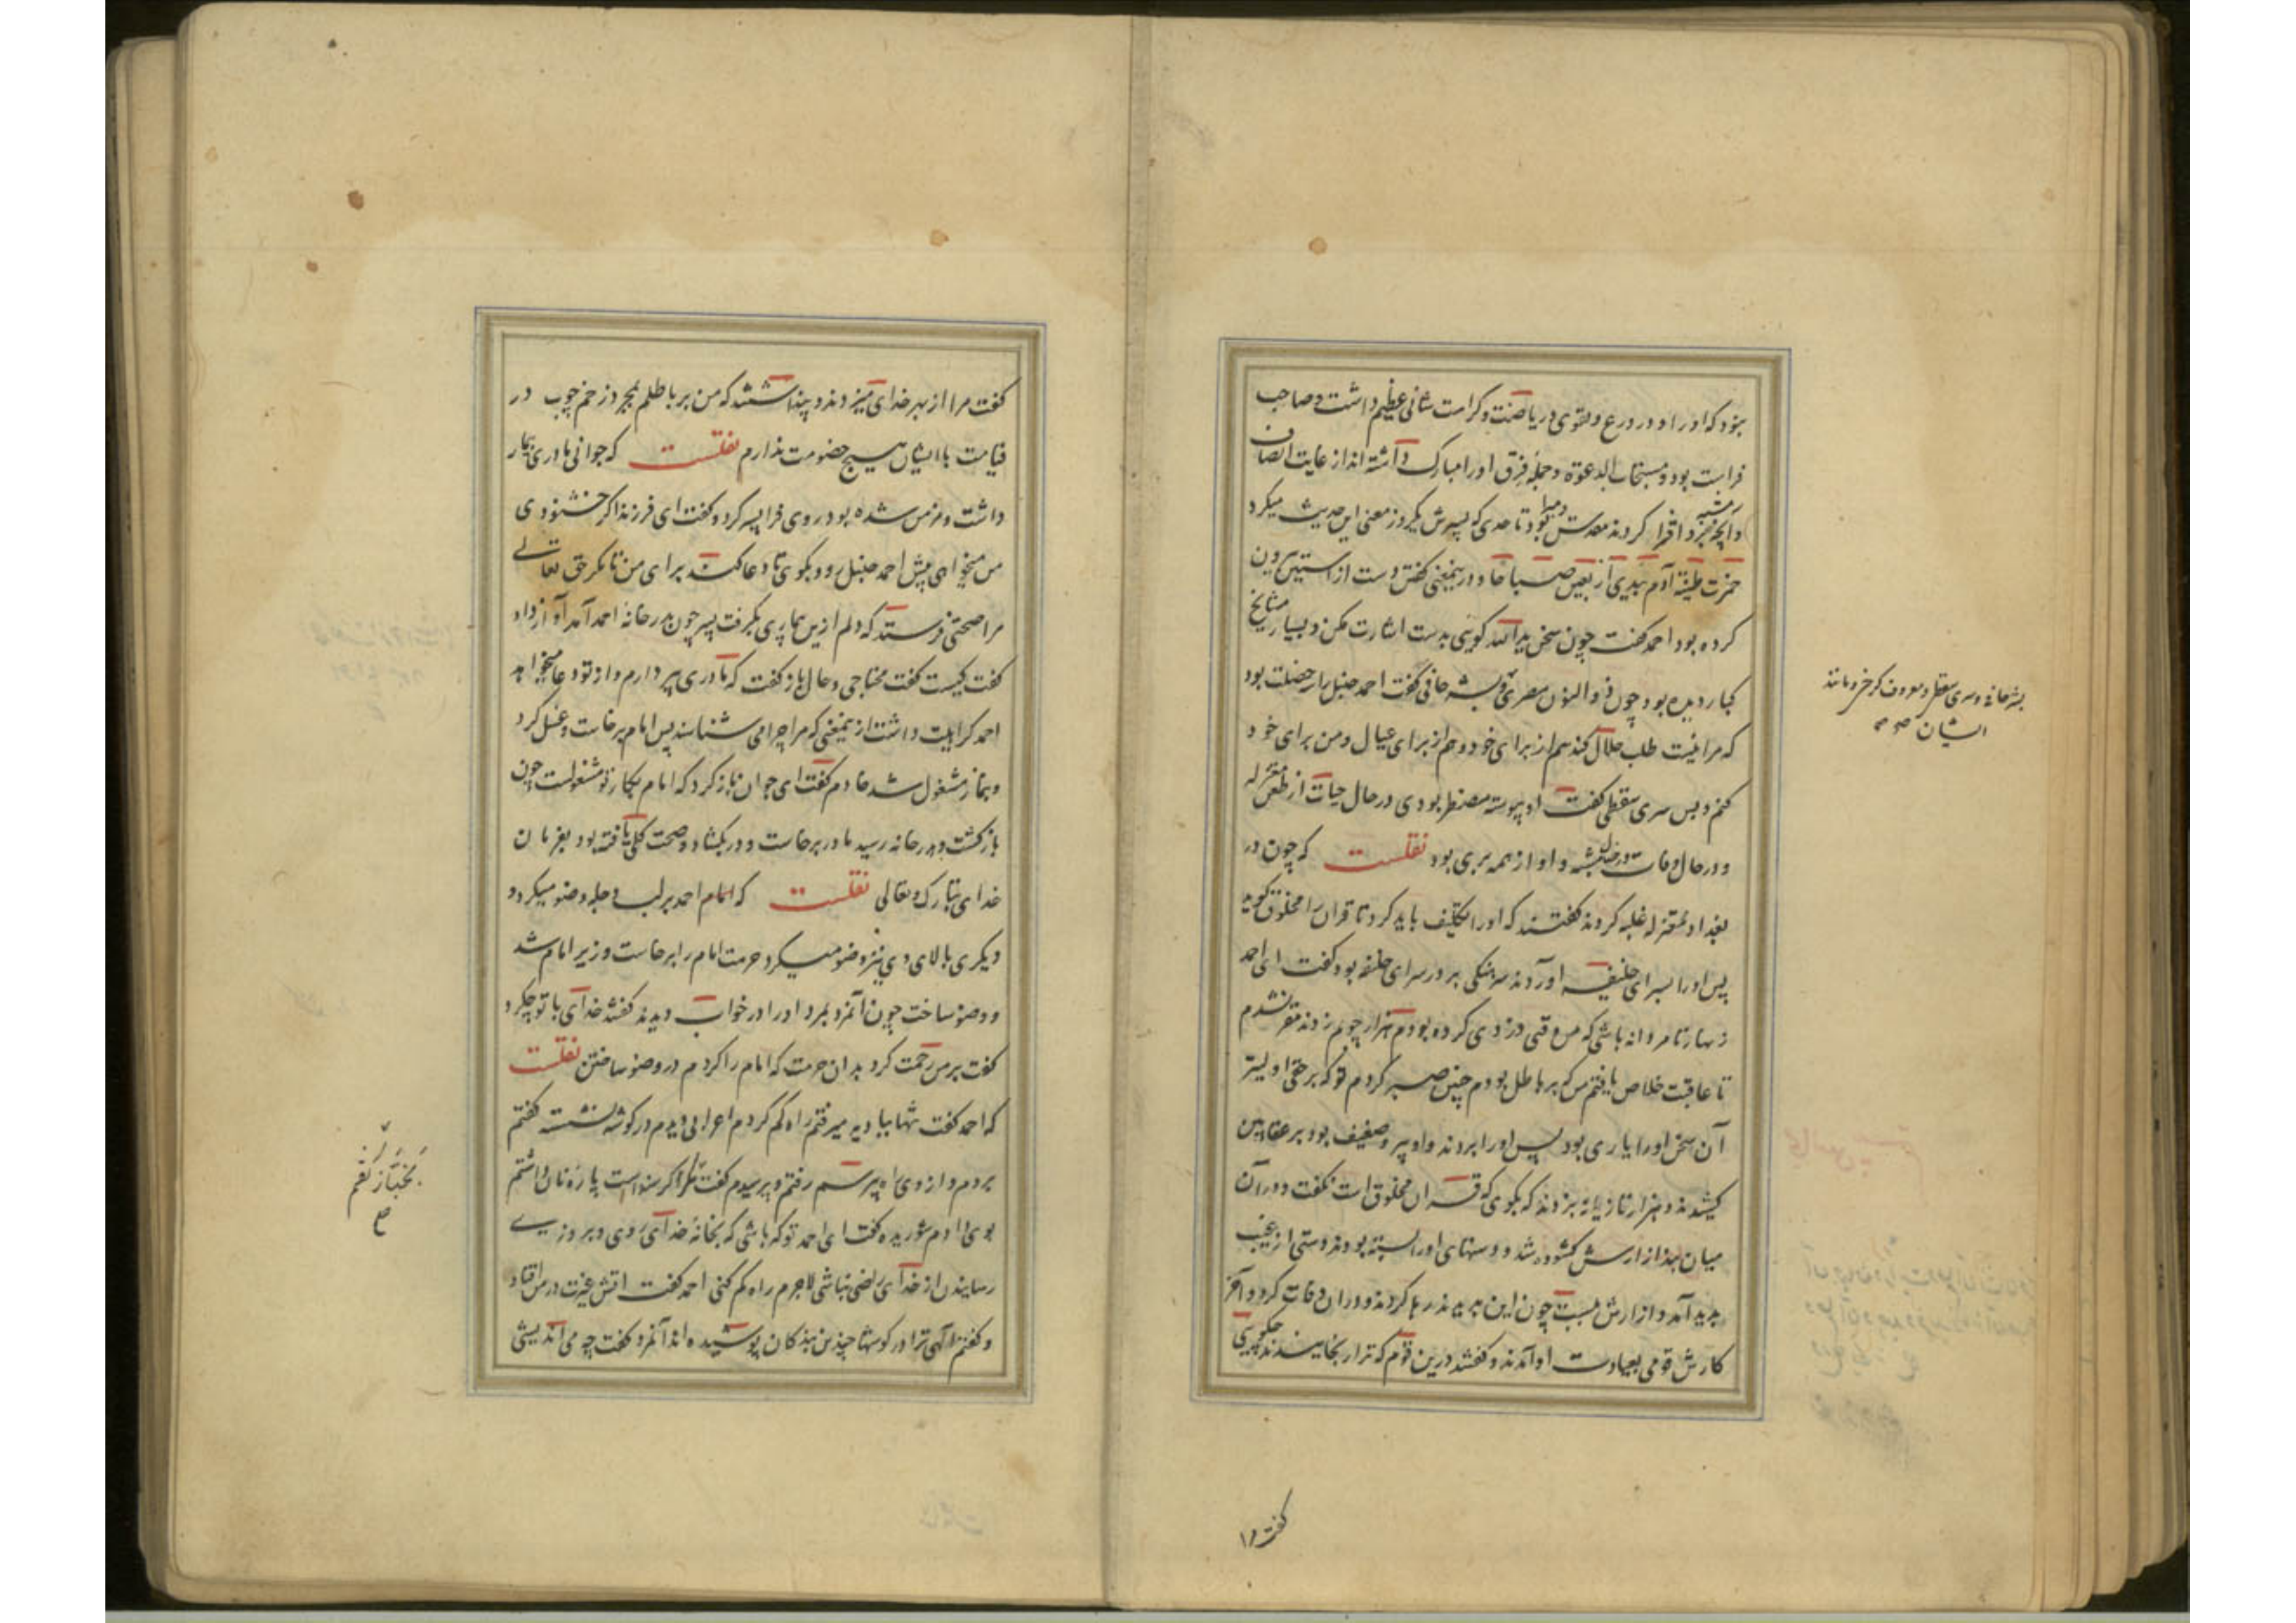 نبود که او را و در ورع و تقوی و ریاضت و کرامت شانی عظیم داشت و صاحب
فراست بود و مستجاب الدعوة و جمله فرق او را مبارک داشته‌اند از غایت انصاف
و آنچه مشبه برو افترا کردند مقدس و مبرا بود تا حدی که پسرش یکروز معنی این حدیث میکرد
خمرت طینة آدم بیدی اربعین صباحا و در ینمعنی گفتن دست از آستین بیرون
کرده بود احمد گفت چون سخن ید الله گویی بدست اشارت مکن و بسیار مشایخ
کبار دیده بود چون ذو النون مصری و بشر حافی گفت احمد حنبل را سه خصلت بود
که مرا نیست طلب حلال کند هم از برای خود و هم از برای عیال و من برای خود
کنم و بس سری سقطی گفت او پیوسته مضطر بودی در حال حیات از طعن معتزله
و در حال وفات در خیال مشبه و او از همه بری بود نقلست که چون در
بغداد معتزله غلبه کردند گفتند که او را تکلیف باید کرد تا قرآن را مخلوق گوید
پس او را بسرای خلیفه آوردند سرهنگی بر در سرای خلیفه بود گفت ای احمد
زنهار تا مردانه باشی که من وقتی دزدی کرده بودم هزار چوبم زدند مقر نشدم
تا عاقبت خلاص یافتم من که بر باطل بودم چنین صبر کردم تو که بر حقی اولیتر
آن سخن او را یاری بود پس او را ببردند و او پیر و ضعیف بود بر عقابین
کشیدند و هزار تازیانه بزدند که بگوی که قرآن مخلوق است نگفت و در آن
میان بند ازارش گشوده شد و دستهای او را بسته بودند دستی از غیب
پدید آمد و ازارش ببست چون این بدیدند رها کردند و در آن وفات کرد و در آخر
کارش قومی بعیادت او آمدند و گفتند درین قوم که ترا رنجانیدند چگویی
بشر حافی و سری سقطی و معروف کرخی و مانند
ایشان
گفت مرا
گفت مرا از بهر خدای میزدند و پنداشتند که من بر باطلم بمجرد زخم چوب در
قیامت با ایشان هیچ خصومت ندارم نقلست که جوانی مادری بیمار
داشت و مزمن شده بود روی فرا پسر کرد و گفت ای فرزند اگر خشنودی
من میخواهی پیش احمد حنبل رو و بگوی تا دعا کند برای من تا مگر حق تعالی
مرا صحتی فرستد که دلم ازین بیماری بگرفت پسر چون بدر خانه احمد آمد آواز داد
گفت کیست گفت محتاجی و حال باز گفت که مادری پیر دارم و از تو دعا میخواهد
احمد کراهیت داشت از ینمعنی که مرا چرا می شناسند پس امام برخاست و غسل کرد
و بنماز مشغول شد خادم گفت ای جوان باز گرد که امام بکار تو مشغولست چون
بازگشت و بدر خانه رسید مادر برخاست و در بگشاد و صحت کلی یافته بود بفرمان
خدای تبارک و تعالی نقلست که امام احمد بر لب دجله وضو میکرد و
دیگری بالای وی نیز وضو میکرد حرمت امام را برخاست و زیر امام شد
و وضو ساخت چون آنمرد بمرد او را در خواب دیدند گفتند خدای با تو چکرد
گفت بر من رحمت کرد بدان حرمت که امام را کردم در وضو ساختن نقلست
که احمد گفت تنها ببادیه میرفتم راه گم کردم اعرابی دیدم در گوشه نشسته گفتم
بروم و از وی راه پرسم رفتم و پرسیدم گفت مگر گرسنه است پاره نان داشتم
بوی دادم شوریده گفت ای احمد تو که باشی که بخانه خدای روی و بروزی
رسانیدن از خدای راضی نباشی لاجرم راه گم کنی احمد گفت آتش غیرت در من افتاد
و گفتم الهی ترا در گوشها چندین بندگان پوشیده‌اند آنمرد گفت چه می اندیشی